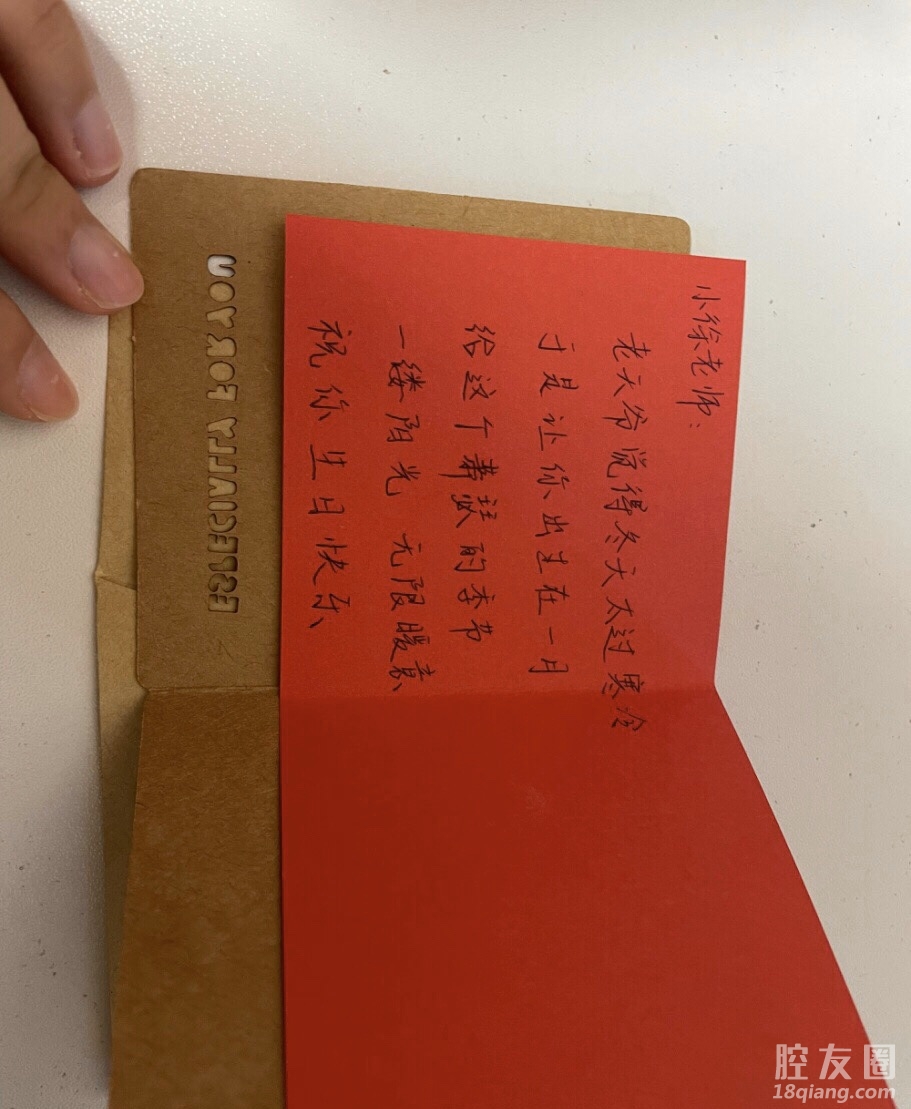 小徐老师:
老天爷觉得冬天太过寒冷
于是让你出生在一月
给这个萧瑟的季节
一缕阳光 无限暖意
祝你生日快乐
ESPECIALLY FOR YOU
腔友圈
18qiang.com